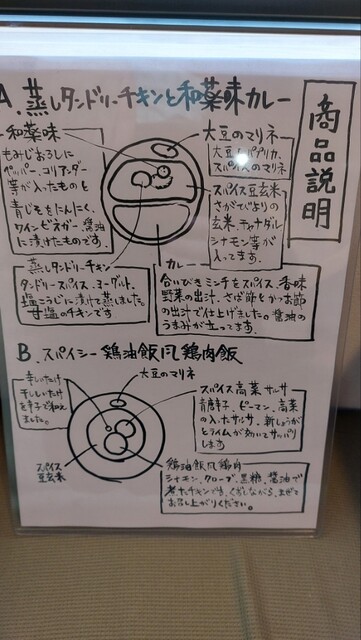 商品説明
A. 蒸しタンドリーチキンと和薬味カレー
和薬味
もみじおろしに
ペッパー、コリアンダー
等が入ったものと
青じそをにんにく、
ワインビネガー、醤油
に漬けたものです。
大豆のマリネ
大豆とパプリカ、
スパイスのマリネ
スパイス豆玄米
さがびよりの
玄米、チャナダル
シナモン等が
入ってます。
蒸しタンドリーチキン
タンドリースパイス、ヨーグルト、
塩こうじに漬けて蒸しました。
甘塩のチキンです
カレー
合いびきミンチをスパイス、香味
野菜の出汁、さば節とかつお節
の出汁で仕上げました。醤油の
うまみが立ってます。
B. スパイシー鶏油飯風鶏肉飯
大豆のマリネ
辛しいたけ
干ししいたけ
を辛子で和え
ました。
スパイス高菜サルサ
青唐辛子、ピーマン、高菜
の入ったサルサ、新しょうが
とライムが効いてサッパリ
します
スパイス
豆玄米
鶏油飯風鶏肉
シナモン、クローブ、黒糖、醤油で
煮たチキンです。くずしながら、まぜて
お召し上がりください。